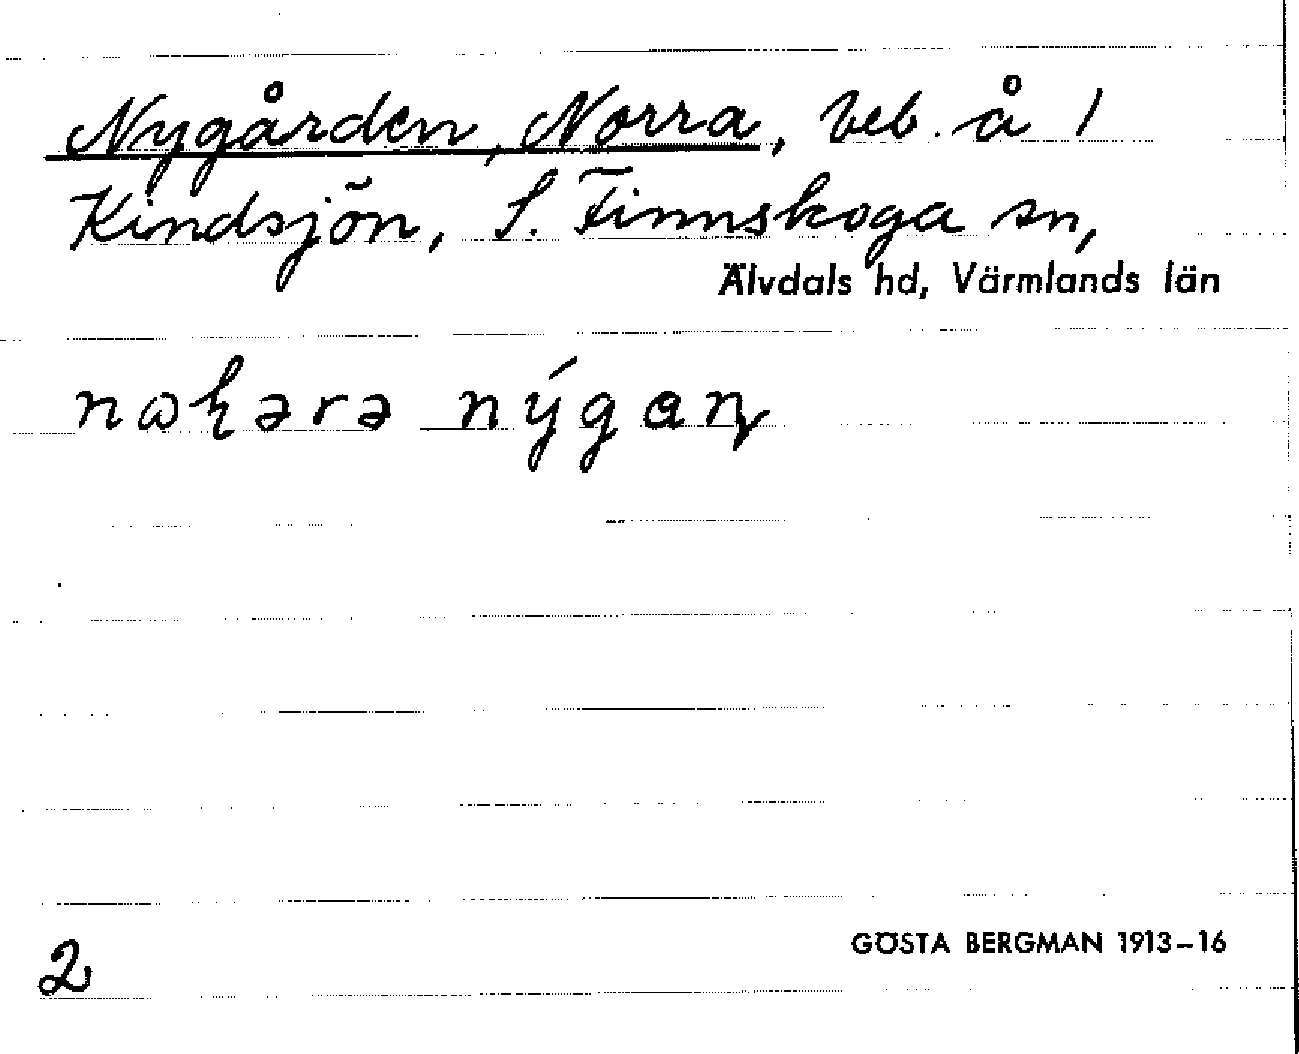 Nygården, Norra, beb. å 1
Kindsjön, S. Finnskoga sn,
Älvdals hd, Värmlands län
nýgaɳ
2
GÖSTA BERGMAN 1913–16